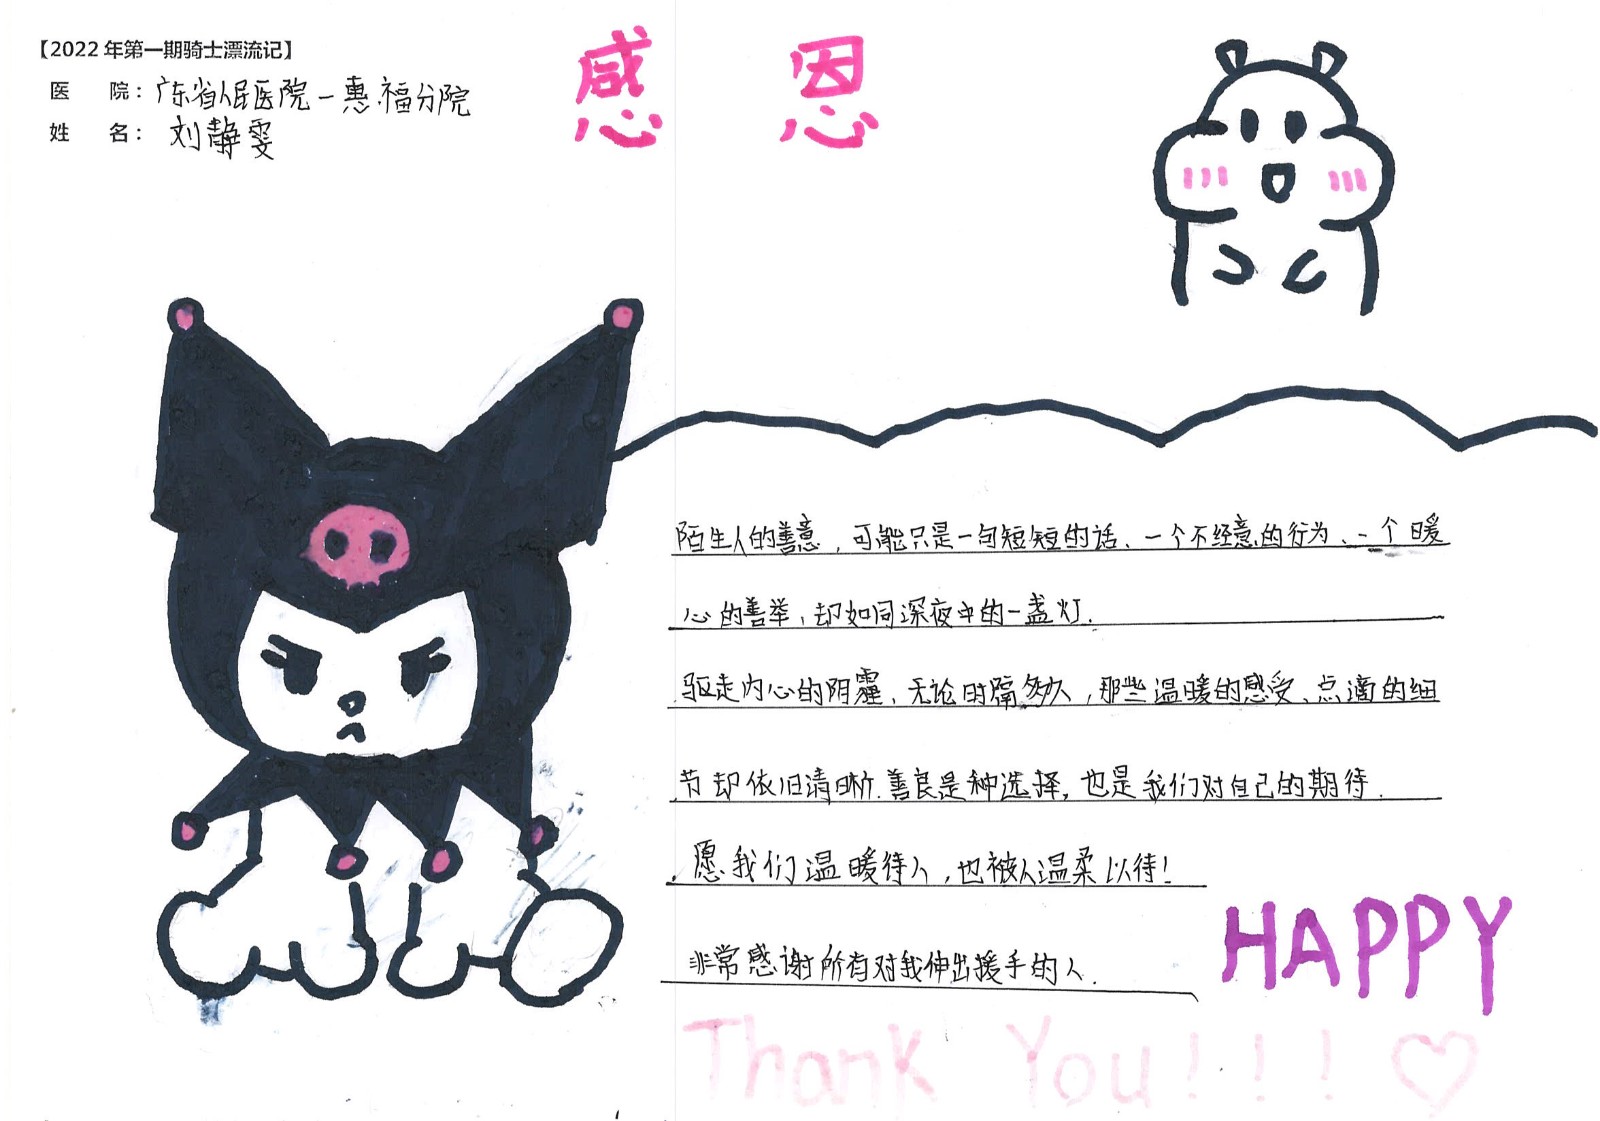 【2022 年第一期骑士漂流记】
医 院：广东省人民医院－惠福分院
姓 名：刘静雯
感 恩
陌生人的善意，可能只是一句短短的话、一个不经意的行为、一个暖
心的善举，却如同深夜中的一盏灯.
驱走内心的阴霾、无论时隔多久，那些温暖的感受、点滴的细
节却依旧清晰.善良是种选择，也是我们对自己的期待.
愿我们温暖待人，也被人温柔以待！
非常感谢所有对我伸出援手的人.
HAPPY
Thank You!!!